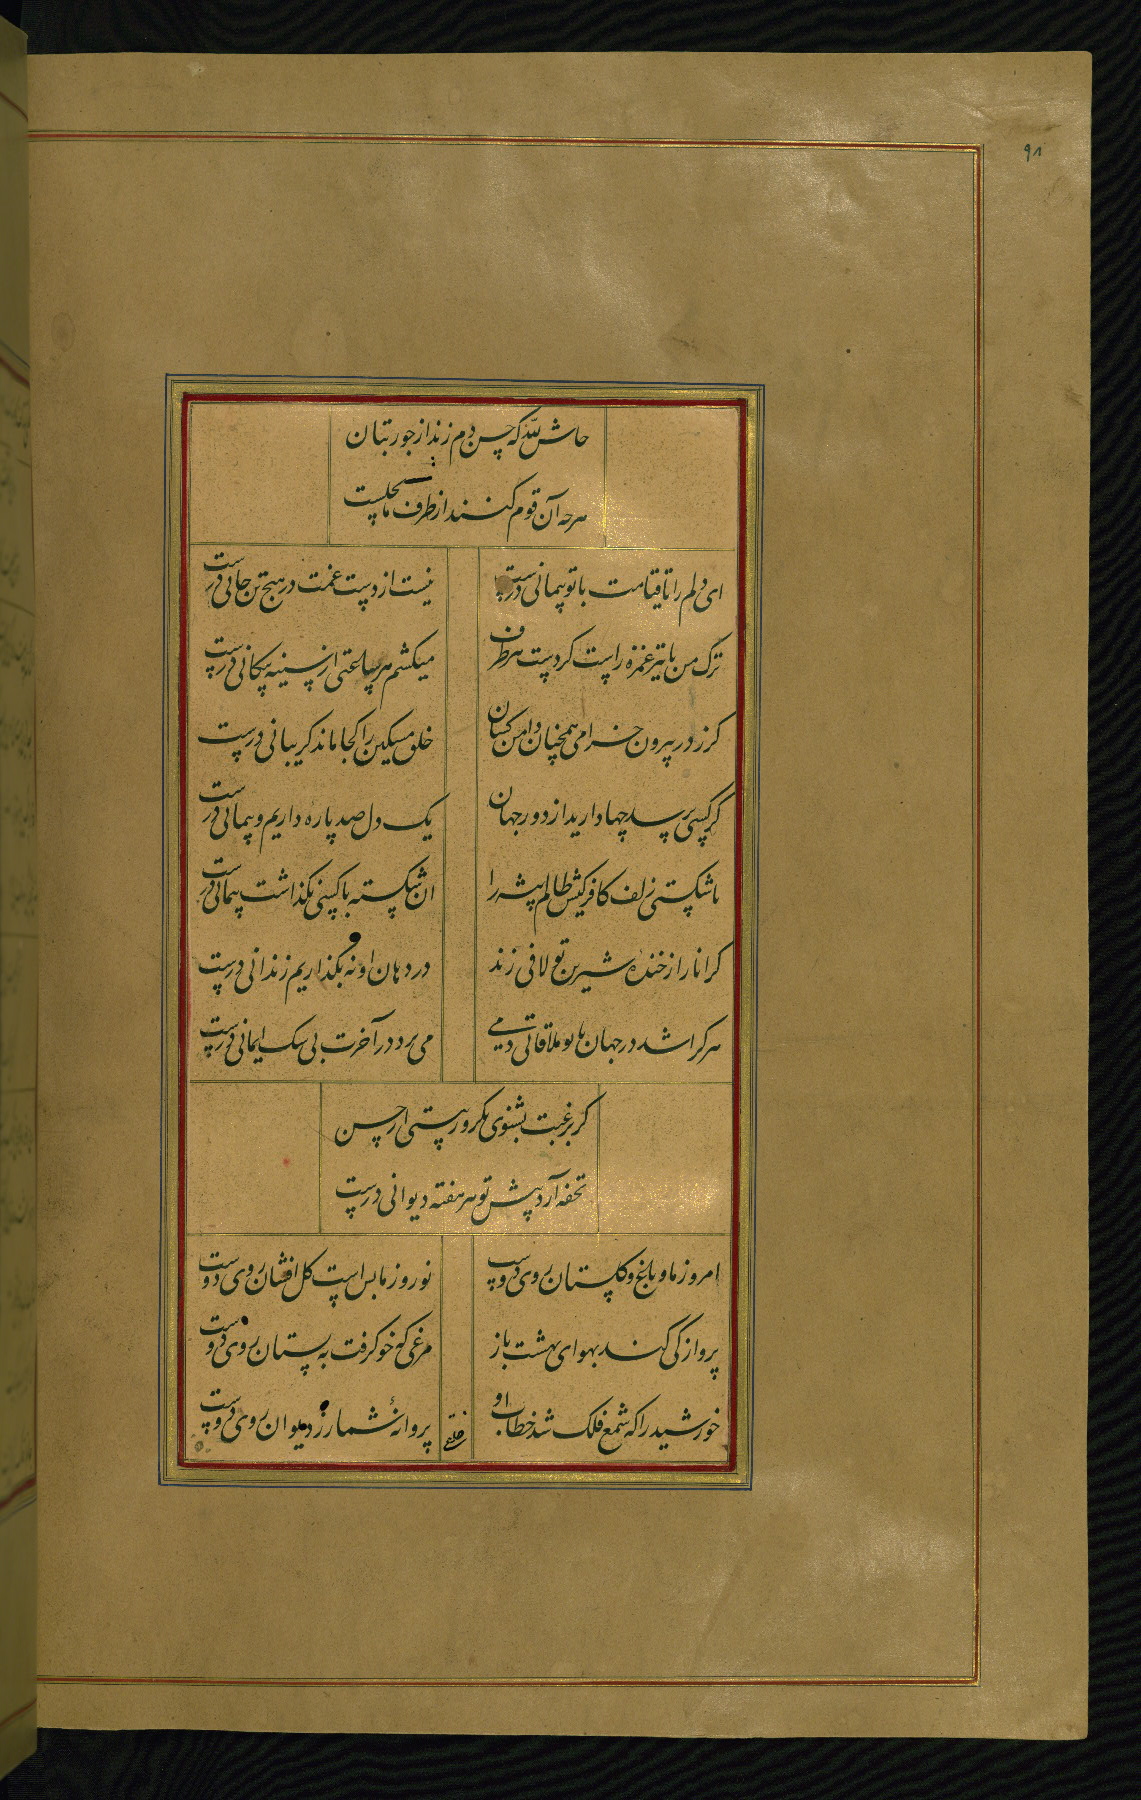 ۹۸
حاش لله که حسن دم زند از جور بتان
هرچه آن قوم کنند از طرف ما بحلست
ای دلم را تا قیامت با تو پیمانی درست
نیست از دست غمت در هیچ تن جانی درست
ترک من تا تیر غمزه راست کردست هر طرف
میکشم هر ساعتی از سینه پیکانی درست
کر ز در بیرون خرامی همچنان دامن کشان
خلق مسکین را کجا ماند کریبانی درست
کر کسی پرسد چها دارید از دور جهان
یک دل صد پاره داریم و پیمانی درست
تا شکستی زلف کافر کیش ظالم پیشه را
ان شکسته با کسی نکذاشت پیمانی درست
کر انار از خنده شیرین تو لافی زند
در دهان او نه بکذاریم زندانی درست
هر کرا شد در جهان با تو ملاقاتی دمی
می برد در آخرت بی شک ایمانی درست
کر برغبت بشنوی مکر و رستی از حسن
تحفه آرد پیش تو هر هفته دیوانی درست
امروز ما و باغ و کلستان روی دوست
نوروز ما بس است کل افشان روی دوست
پرواز کی کند بهوای بهشت باز
مرغی که خو کرفت به بستان روی دوست
خورشید را که شمع فلک شد خطاب او
پروانۀ شمار ز دیوان روی دوست
خلقی